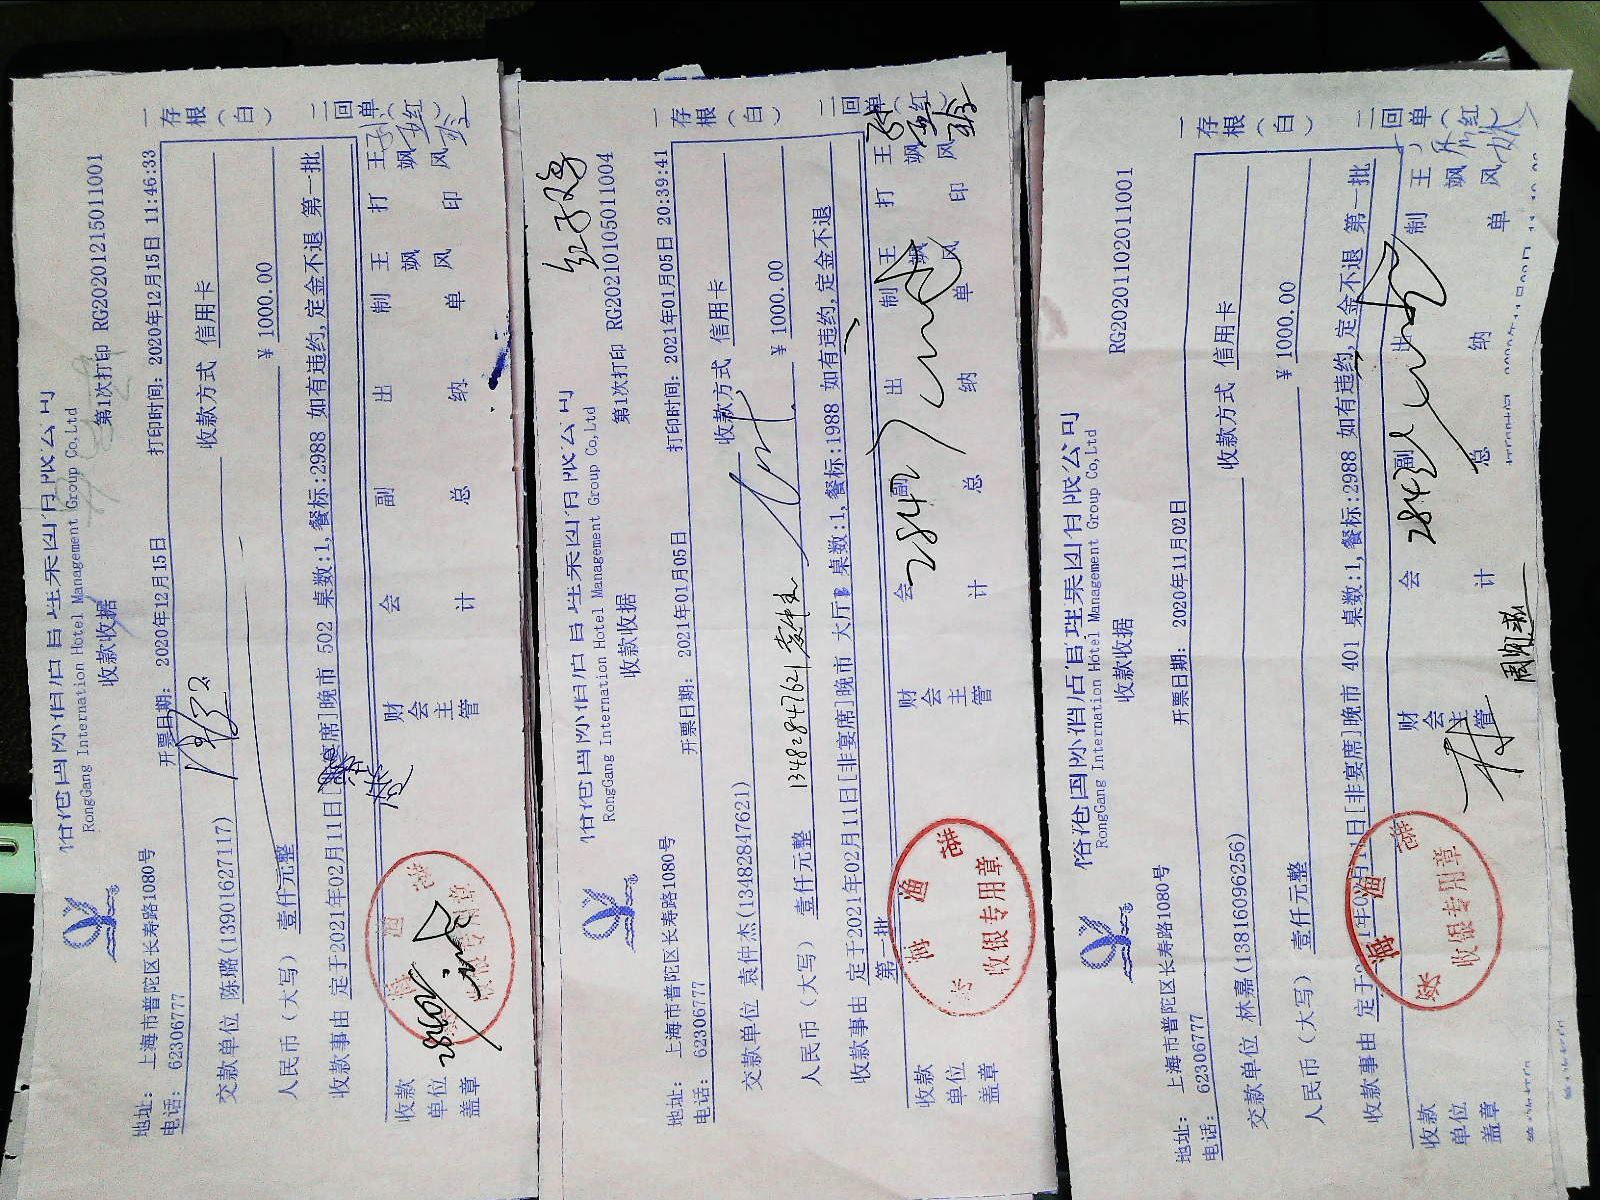 RongGang International Hotel Management Group Co,Ltd
收款收据
第1次打印 RG20201215011001
地址： 上海市普陀区长寿路1080号
电话： 62306777
开票日期： 2020年12月15日
打印时间： 2020年12月15日 11:46:33
交款单位 陈璐(13901627117)
收款方式 信用卡
人民币（大写） 壹仟元整
¥ 1000.00
收款事由 定于2021年02月11日[非宴席]晚市 502 桌数:1,餐标:2988 如有违约,定金不退 第一批
收款单位盖章
财会主管
会计
副总
出纳
制单 王飒风
打印 王飒风
一存根（白）
二回单（红）
RongGang International Hotel Management Group Co,Ltd
收款收据
第1次打印 RG20210105011004
地址： 上海市普陀区长寿路1080号
电话： 62306777
开票日期： 2021年01月05日
打印时间： 2021年01月05日 20:39:41
交款单位 袁仲杰(13482847621)
收款方式 信用卡
人民币（大写） 壹仟元整
13482847621
¥ 1000.00
收款事由 定于2021年02月11日[非宴席]晚市 大厅 桌数:1,餐标:1988 如有违约,定金不退
第一批
收款单位盖章
收银专用章
财会主管
会计
副总
出纳
制单 王飒风
打印 王飒风
一存根（白）
二回单（红）
RongGang International Hotel Management Group Co,Ltd
收款收据
RG20201102011001
地址： 上海市普陀区长寿路1080号
电话： 62306777
开票日期： 2020年11月02日
交款单位 林嘉(13816096256)
收款方式 信用卡
人民币（大写） 壹仟元整
¥ 1000.00
收款事由 定于2021年02月11日[非宴席]晚市 401 桌数:1,餐标:2988 如有违约,定金不退 第一批
收款单位盖章
收银专用章
财会主管
会计
副总
出纳
制单 王飒风
一存根（白）
二回单（红）